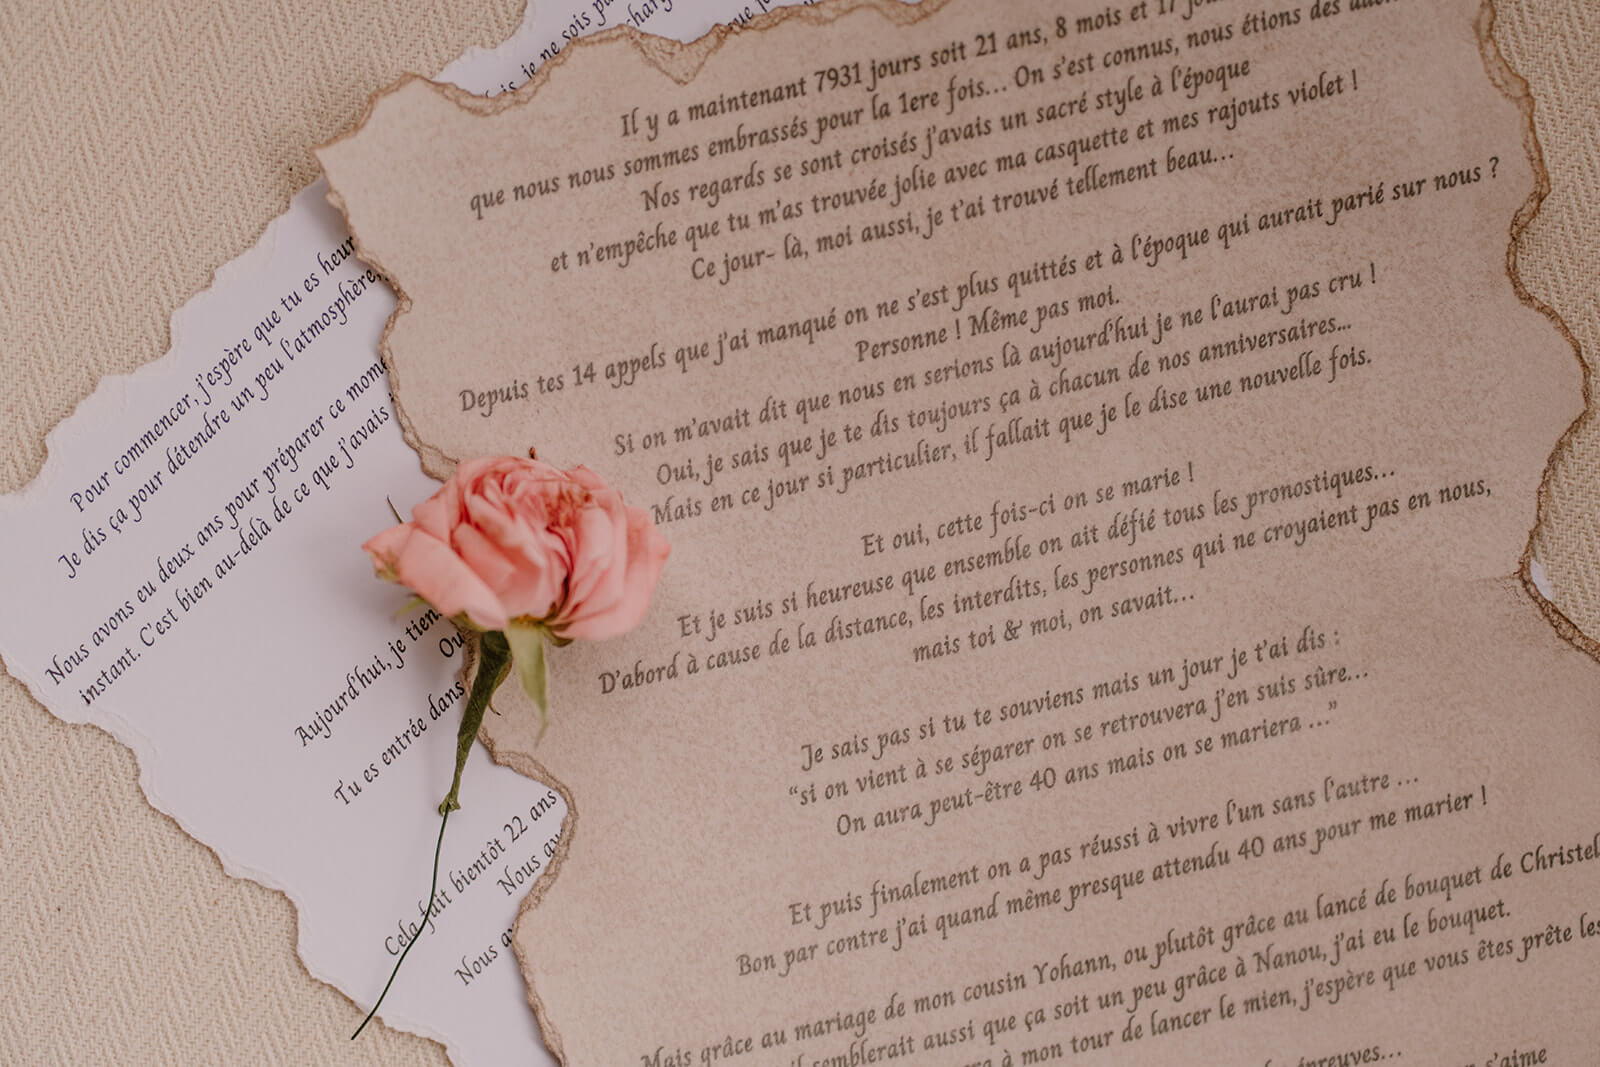 je ne sois pa
Il y a maintenant 7931 jours soit 21 ans, 8 mois et 17
que nous nous sommes embrassés pour la 1ere fois... On s'est connus, nous étions des
Nos regards se sont croisés j'avais un sacré style à l'époque
et n'empêche que tu m'as trouvée jolie avec ma casquette et mes rajouts violet !
Ce jour- là, moi aussi, je t'ai trouvé tellement beau...
Depuis tes 14 appels que j'ai manqué on ne s'est plus quittés et à l'époque qui aurait parié sur nous ?
Personne ! Même pas moi.
Si on m'avait dit que nous en serions là aujourd'hui je ne l'aurai pas cru !
Oui, je sais que je te dis toujours ça à chacun de nos anniversaires...
Mais en ce jour si particulier, il fallait que je le dise une nouvelle fois.
Et oui, cette fois-ci on se marie !
Et je suis si heureuse que ensemble on ait défié tous les pronostiques...
D'abord à cause de la distance, les interdits, les personnes qui ne croyaient pas en nous,
mais toi & moi, on savait...
Je sais pas si tu te souviens mais un jour je t'ai dis :
“si on vient à se séparer on se retrouvera j'en suis sûre...
On aura peut-être 40 ans mais on se mariera ...”
Et puis finalement on a pas réussi à vivre l'un sans l'autre ...
Bon par contre j'ai quand même presque attendu 40 ans pour me marier !
Mais grâce au mariage de mon cousin Yohann, ou plutôt grâce au lancé de bouquet de Christel
semblerait aussi que ça soit un peu grâce à Nanou, j'ai eu le bouquet.
à mon tour de lancer le mien, j'espère que vous êtes prête les
épreuves...
s'aime
Pour commencer, j'espère que tu es heur
Je dis ça pour détendre un peu l'atmosphère,
Nous avons eu deux ans pour préparer ce mome
instant. C'est bien au-delà de ce que j'avais
Aujourd'hui, je tien
Ou
Tu es entrée dans
Cela fait bientôt 22 ans
Nous av
Nous a